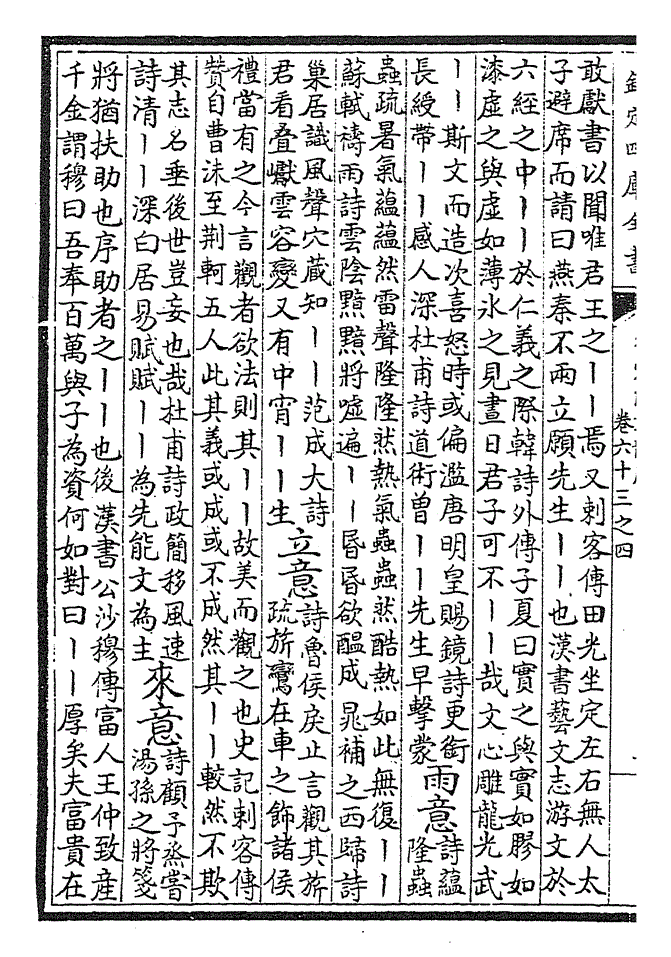 欽定四庫全書
卷六十三之四
敢獻書以聞唯君王之丨丨焉又刺客傳田光坐定左右無人太
子避席而請曰燕秦不兩立願先生丨丨也漢書藝文志游文於
六經之中丨丨於仁義之際韓詩外傳子夏曰實之與實如膠如
漆虛之與虛如薄氷之見晝日君子可不丨丨哉文心雕龍光武
丨丨斯文而造次喜怒時或偏濫唐明皇賜鏡詩更銜
長綬帶丨丨感人深杜甫詩道術曾丨丨先生早擊蒙
雨意
詩蘊
隆蟲
蟲疏暑氣蘊蘊然雷聲隆隆然熱氣蟲蟲然酷熱如此無復丨丨
蘇軾禱雨詩雲陰黯黯將噓遍丨丨昬昬欲醖成晁補之西歸詩
巢居識風聲穴藏知丨丨范成大詩
君看叠巘雲容變又有中宵丨丨生
立意
詩魯侯戾止言觀其旂
疏旂鸞在車之飾諸侯
禮當有之今言觀者欲法則其丨丨故美而觀之也史記刺客傳
贊自曹沫至荆軻五人此其義或成或不成然其丨丨較然不欺
其志名垂後世豈妄也哉杜甫詩政簡移風速
詩清丨丨深白居易賦賦丨丨為先能文為主
來意
詩顧予烝嘗
湯孫之將箋
將猶扶助也序助者之丨丨也後漢書公沙穆傳富人王仲致產
千金謂穆曰吾奉百萬與子為資何如對曰丨丨厚矣夫富貴在